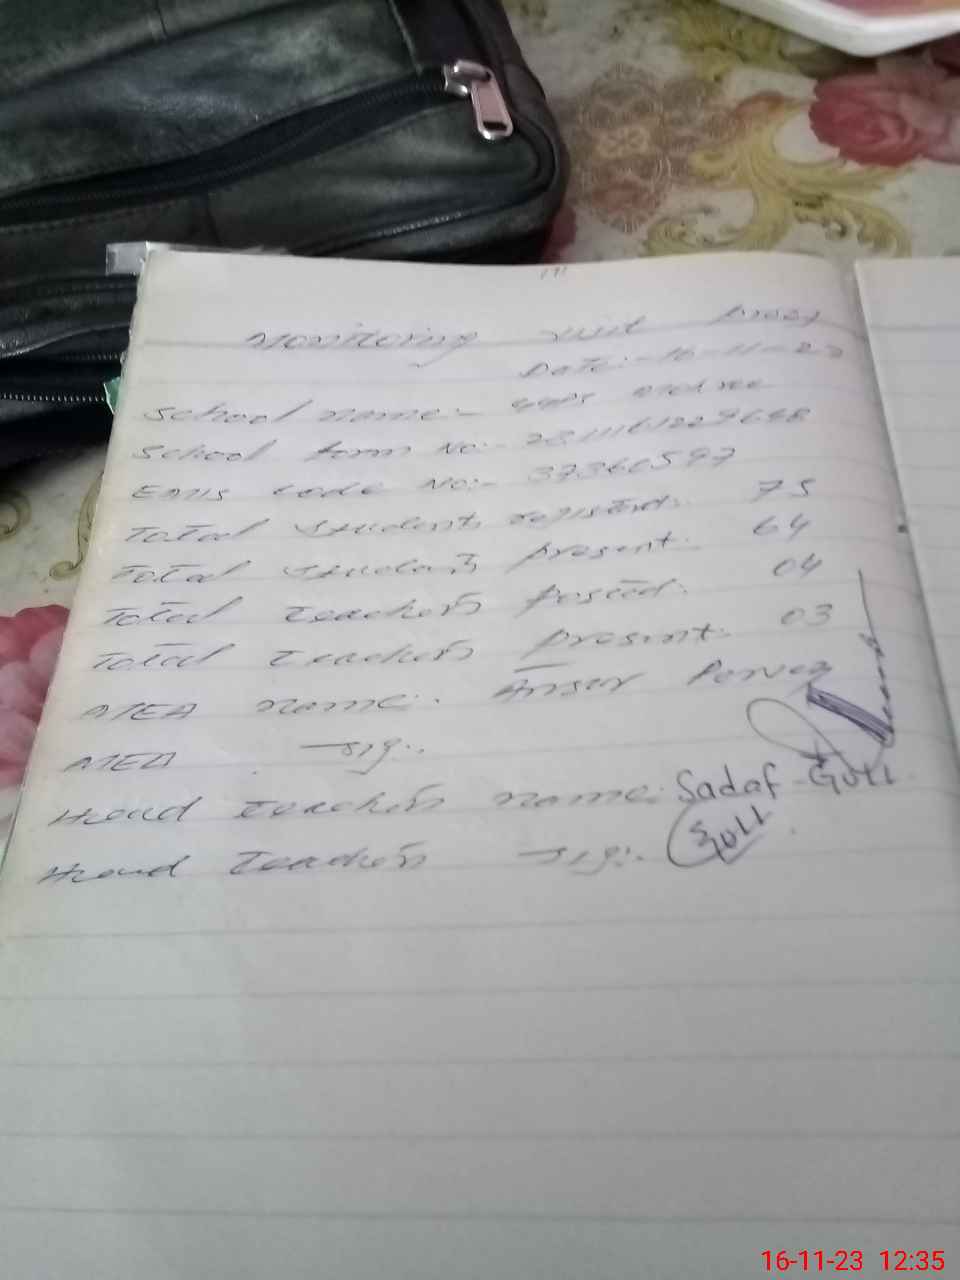 Monitoring visit proof
Date:- 16-11-23
School name:- GGPS
School form No:- 2311161229648
Emis code No:- 37360597
Total students registerd: 75
Total students present: 64
Total teachers posted: 04
Total teachers present: 03
MEA name:. Ansar Pervez
MEA sig:.
Head teachers name: Sadaf-Gull.
Head teachers sig:. Gull
16-11-23 12:35